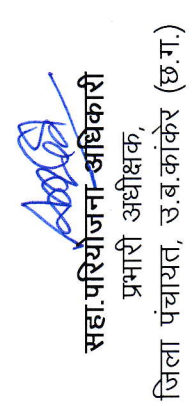 सहा.परियोजना अधिकारी
प्रभारी अधीक्षक,
जिला पंचायत, उ.ब.कांकेर (छ.ग.)